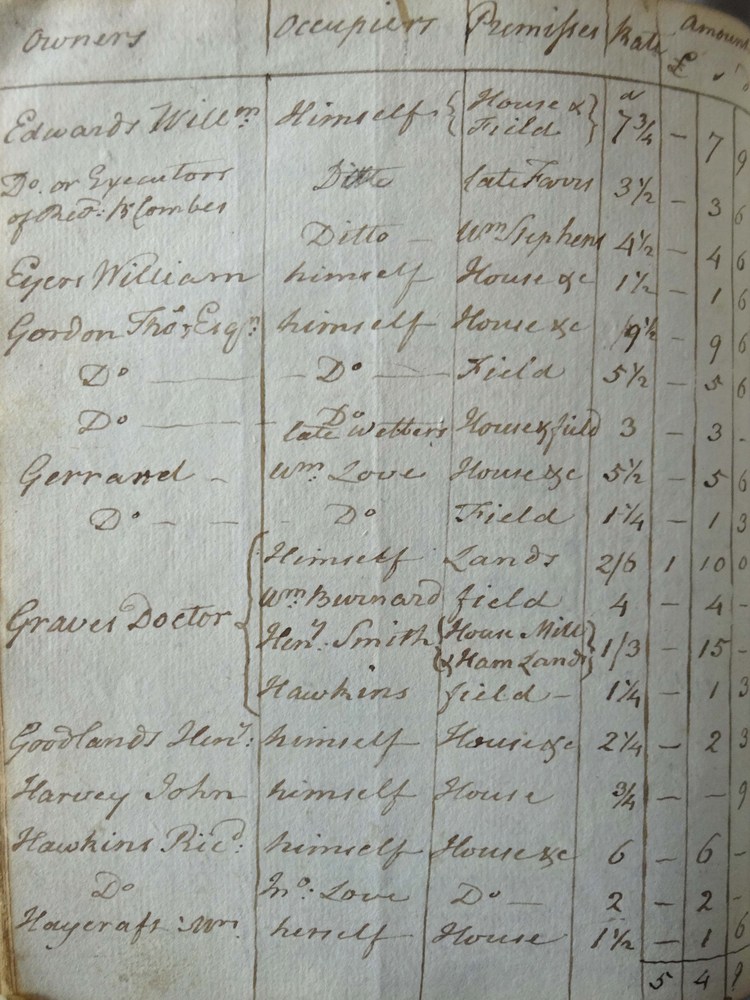 Owners Occupiers Premisses Rate Amount
£ s
Edwards Willm Himself { House & Field } d 7¾ - 7 9
Do. or Executors of Revd: Combes Ditto late Favis 3½ - 3 6
Ditto - Wm Stephens 4½ - 4 6
Eyers William himself House &c 1½ - 1 6
Gordon Thos Esqr: himself House &c 9½ - 9 6
Do - Do - Field 5½ - 5 6
Do - Do late Webbers House & field 3 - 3 -
Gerrard - Wm Love House &c 5½ - 5 6
Do - - - Do Field 1¼ - 1 3
Graves Doctor { Himself Lands 2/6 1 10 0
Wm: Burnard field 4 - 4 -
Heny: Smith { House Mill & Ham Lands } 1/3 - 15 -
Hawkins field - 1¼ - 1 3
Goodlands Heny: himself House &c 2¼ - 2 3
Harvey John himself House ¾ - - 9
Hawkins Ricd: himself House &c 6 - 6 -
Do Jno: Love Do - 2 - 2 -
Haycraft: Mrs. herself House 1½ - 1 6
5 4 9